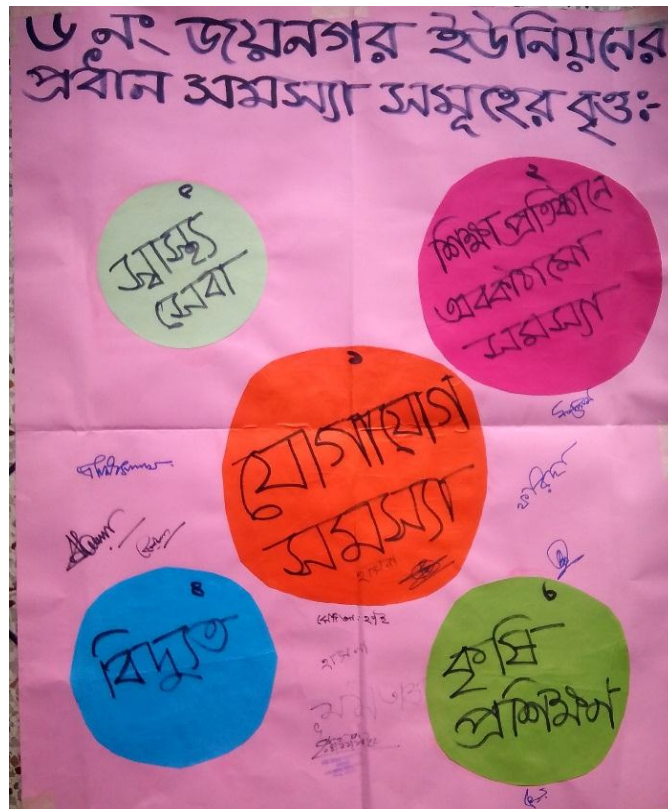 ৬ নং জয়নগর ইউনিয়নের
প্রধান সমস্যা সমূহের বৃত্ত:-
৫
স্বাস্থ্য
সেবা
২
শিক্ষা প্রতিষ্ঠানে
অবকাঠামো
সমস্যা
১
যোগাযোগ
সমস্যা
হাসনা
ফরিদা
৪
বিদ্যুত
৩
কৃষি
প্রশিক্ষণ
হাসনা
মমতাজ